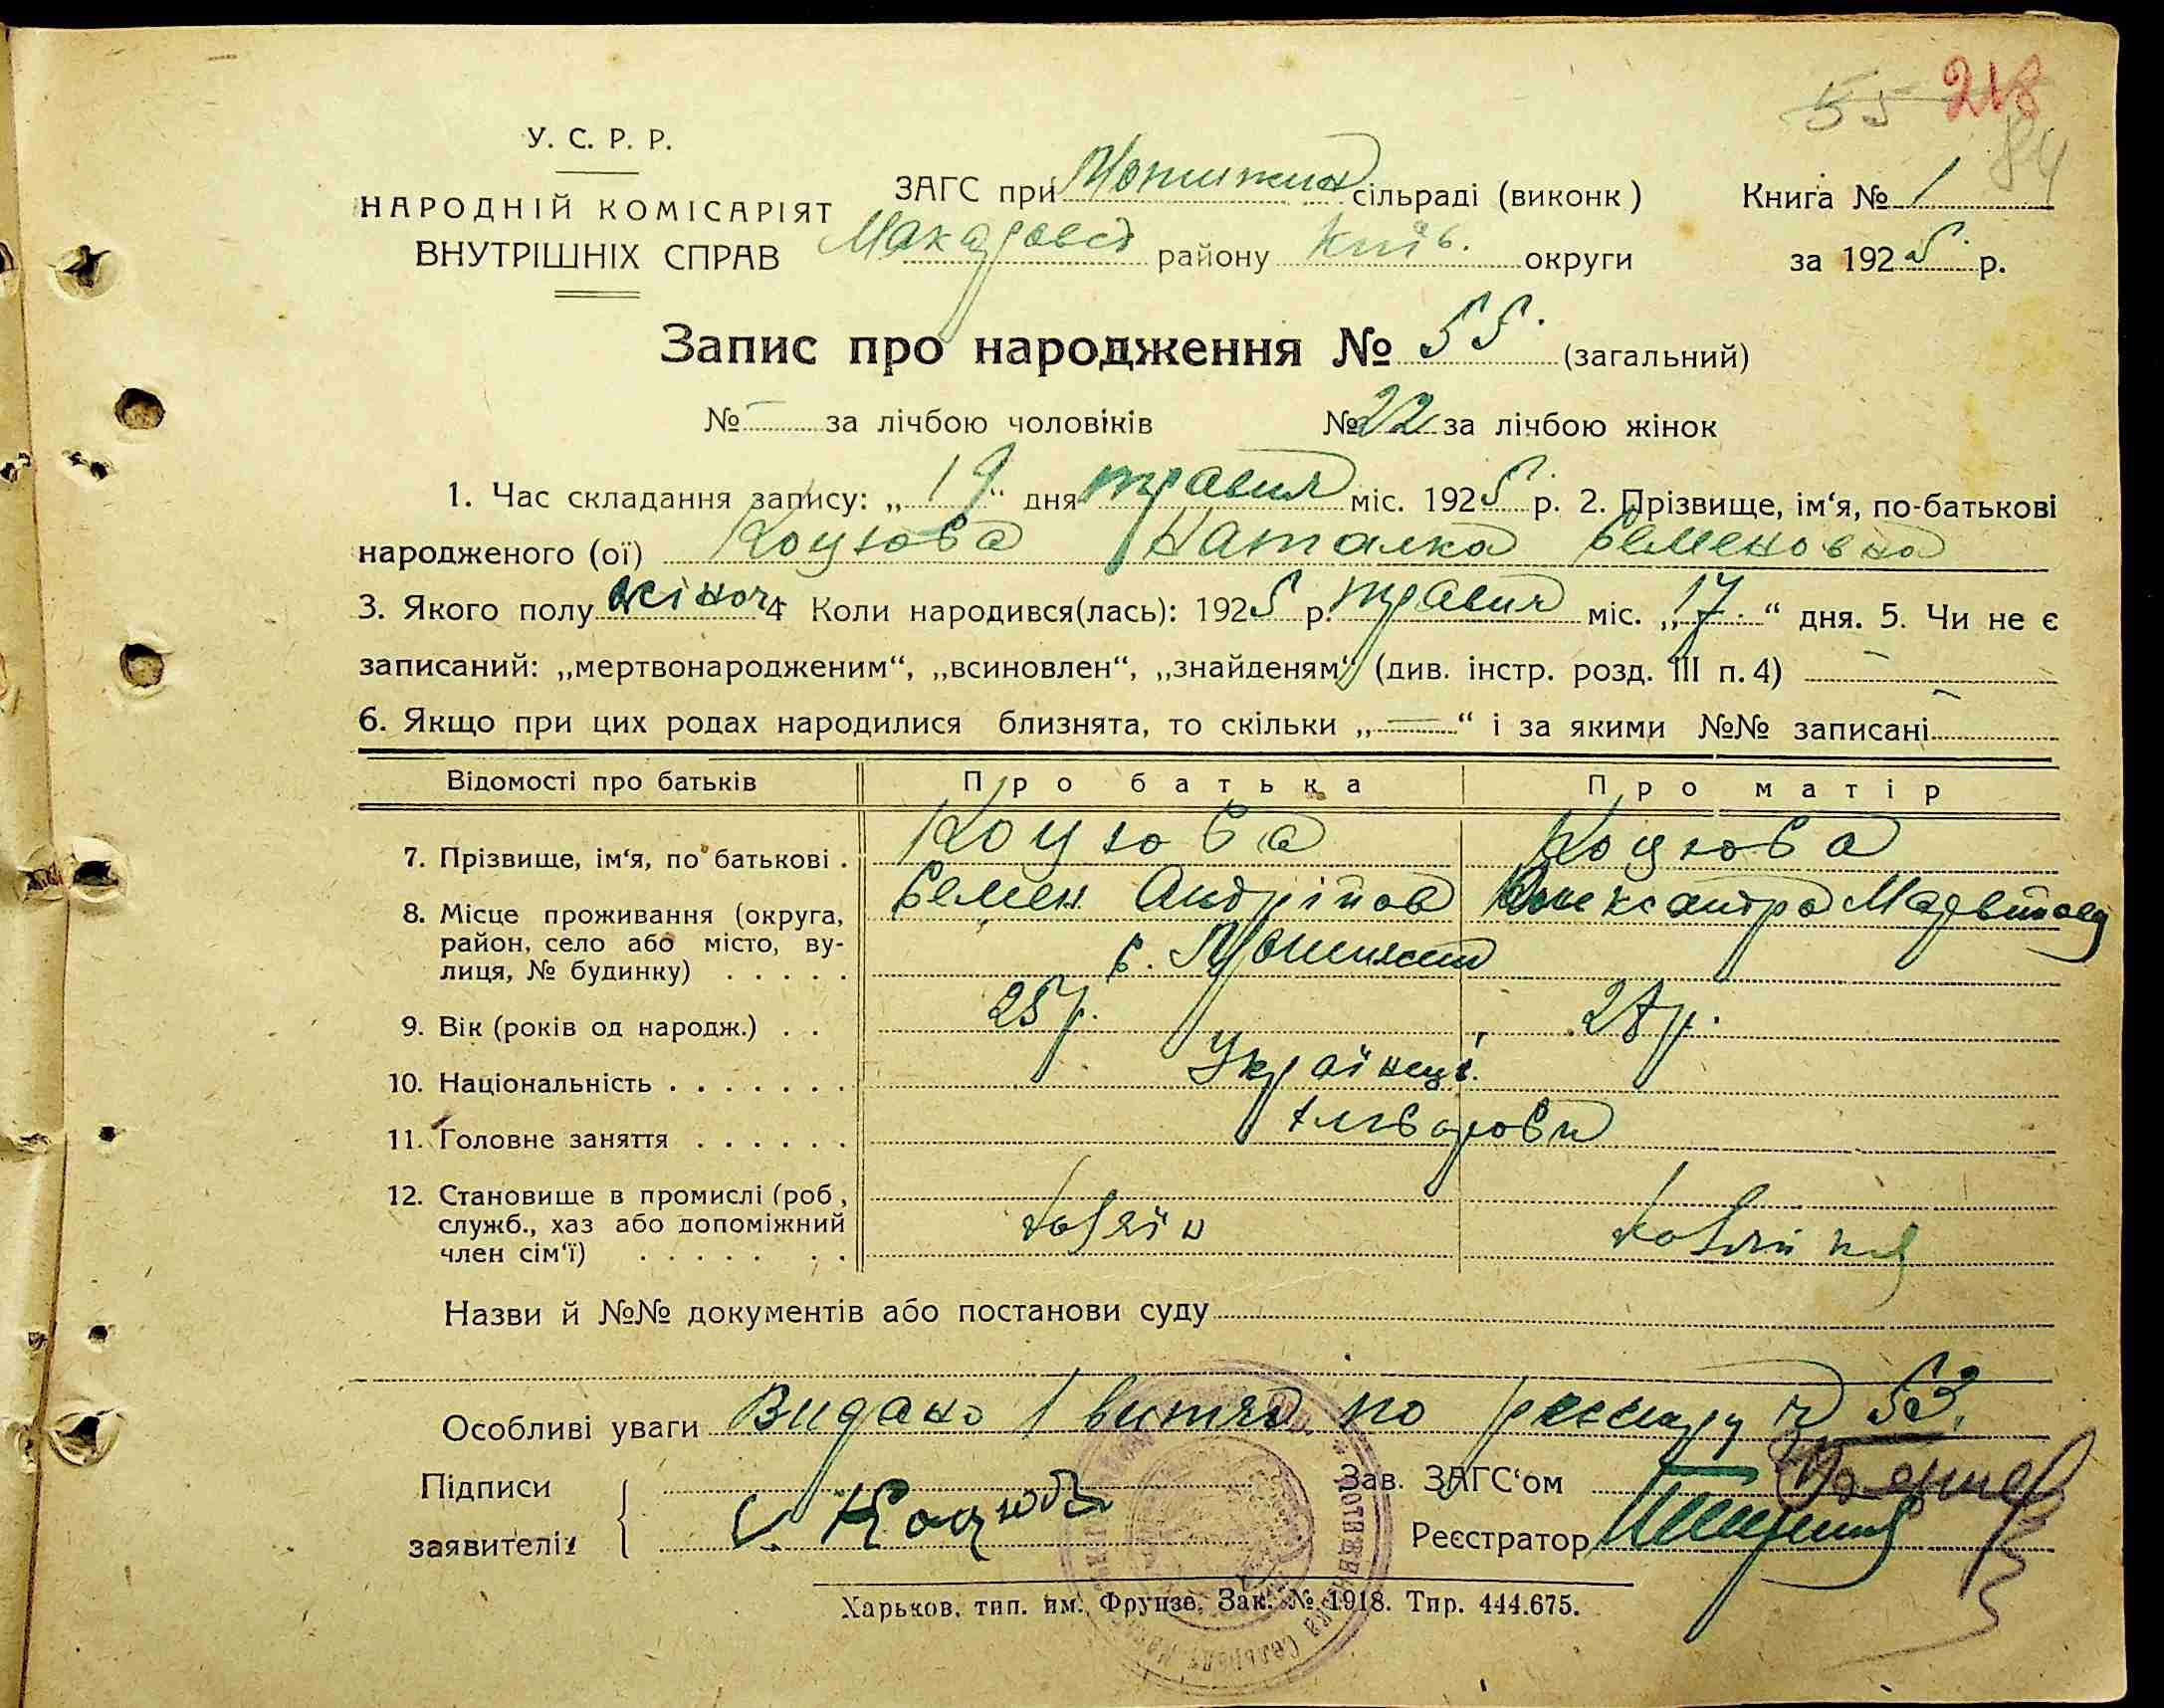 55 218
84
У. С. Р. Р.
НАРОДНІЙ КОМІСАРІЯТ
ВНУТРІШНІХ СПРАВ
ЗАГС при Мотижин сільраді (виконк) Книга № 1
Макарівсь району Київ. округи за 1925 р.
Запис про народження № 55. (загальний)
№ — за лічбою чоловіків № 22 за лічбою жінок
1. Час складання запису: „19“ дня травня міс. 1925 р. 2. Прізвище, ім‘я, по-батькові
народженого (ої) Коцюба Наталка Семеновна
3. Якого полу жіноч 4 Коли народився(лась): 1925 р. травня міс. „17.“ дня. 5. Чи не є
записаний: „мертвонародженим“, „всиновлен“, „знайденям“ (див. інстр. розд. III п. 4) —
6. Якщо при цих родах народилися близнята, то скільки „—“ і за якими №№ записані —
Відомості про батьків Про батька Про матір
7. Прізвище, ім‘я, по батькові . Коцюба Коцюба
Семен Андрійов Олександра
8. Місце проживання (округа,
район, село або місто, ву-
лиця, № будинку) . . . . . с. Мотижин
9. Вік (років од народж.) . . 25 р.
10. Національність . . . . . . . Українці.
11. Головне заняття . . . . . . хліборобн
12. Становище в промислі (роб,
служб., хаз або допоміжний
член сім‘ї) . . . . . . . хазяїн хазяйка
Назви й №№ документів або постанови суду
Особливі уваги Видано 1 витяг по реєстру ч 53.
Підписи
заявителів
С. Коцюба
Зав. ЗАГС‘ом
Реєстратор
Харьков, тип. им. Фрунзе, Зак. № 1918. Тир. 444.675.